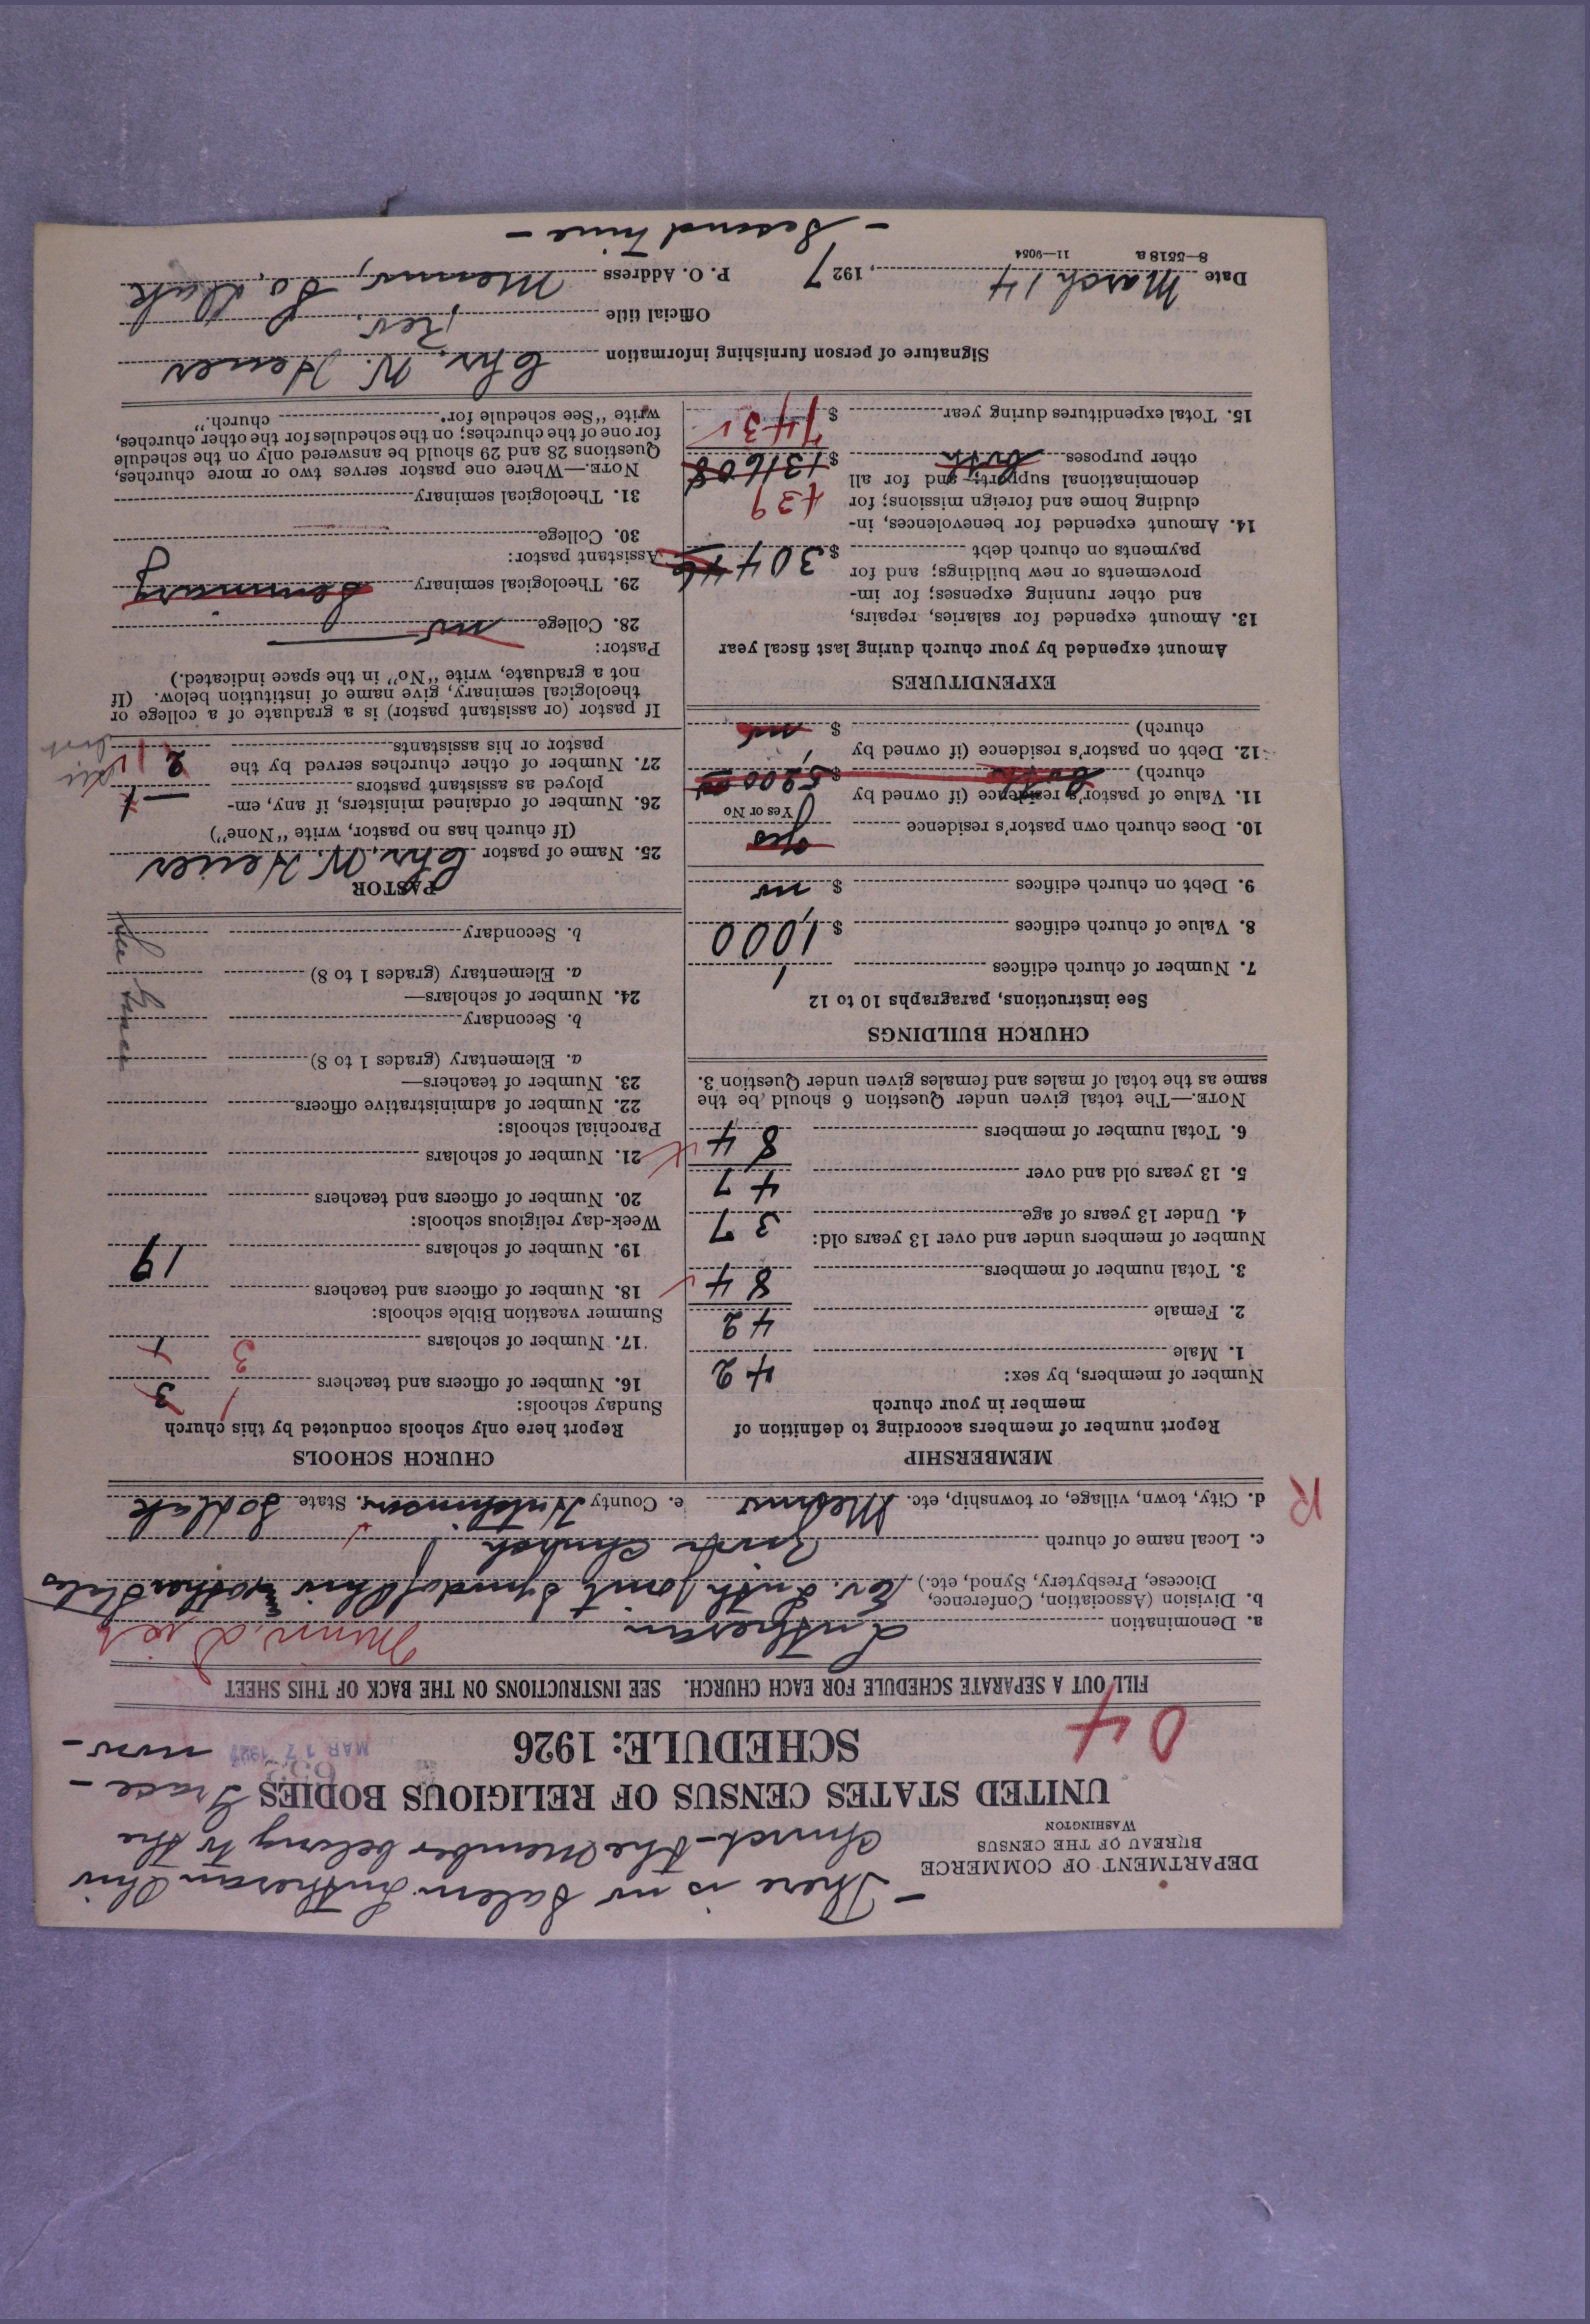 — There is no Salem Lutheran Ohio
Church – the Member belong to the
Grace –
now –
DEPARTMENT OF COMMERCE
BUREAU OF THE CENSUS
WASHINGTON
UNITED STATES CENSUS OF RELIGIOUS BODIES
SCHEDULE: 1926
MAR 17 1927
04
FILL OUT A SEPARATE SCHEDULE FOR EACH CHURCH. SEE INSTRUCTIONS ON THE BACK OF THIS SHEET
a. Denomination Lutheran
b. Division (Association, Conference, Diocese, Presbytery, Synod, etc.) Ev. Luth Joint Synod of Ohio & other States
c. Local name of church Church
d. City, town, village, or township, etc. Menno e. County Hutchinson State So Dak
R
MEMBERSHIP
Report number of members according to definition of
member in your church
Number of members, by sex:
1. Male 42
2. Female 42
3. Total number of members 84
Number of members under and over 13 years old:
4. Under 13 years of age 37
5. 13 years old and over 47
6. Total number of members 84
NOTE.—The total given under Question 6 should be the
same as the total of males and females given under Question 3.
CHURCH BUILDINGS
See instructions, paragraphs 10 to 12
7. Number of church edifices 1
8. Value of church edifices $ 1,000
9. Debt on church edifices $ no
10. Does church own pastor's residence yes
Yes or No
11. Value of pastor's residence (if owned by
church) both $ 5200 00
12. Debt on pastor's residence (if owned by
church) $ no
EXPENDITURES
Amount expended by your church during last fiscal year
13. Amount expended for salaries, repairs,
and other running expenses; for im-
provements or new buildings; and for
payments on church debt $ 304
14. Amount expended for benevolences, in-
cluding home and foreign missions; for 439
denominational support; and for all
other purposes both $ 1316 08
15. Total expenditures during year $ 743
CHURCH SCHOOLS
Report here only schools conducted by this church
Sunday schools:
16. Number of officers and teachers 3
17. Number of scholars 3
Summer vacation Bible schools:
18. Number of officers and teachers
19. Number of scholars 19
Week-day religious schools:
20. Number of officers and teachers
21. Number of scholars
Parochial schools:
22. Number of administrative officers
23. Number of teachers—
a. Elementary (grades 1 to 8)
b. Secondary
24. Number of scholars—
a. Elementary (grades 1 to 8)
b. Secondary
See Grace
PASTOR
25. Name of pastor Chr. W. Heuer
(If church has no pastor, write "None")
26. Number of ordained ministers, if any, em-
ployed as assistant pastors —
27. Number of other churches served by the
pastor or his assistants 2
If pastor (or assistant pastor) is a graduate of a college or
theological seminary, give name of institution below. (If
not a graduate, write "No" in the space indicated.)
Pastor:
28. College no
29. Theological seminary Seminary
Assistant pastor:
30. College
31. Theological seminary
NOTE.—Where one pastor serves two or more churches,
Questions 28 and 29 should be answered only on the schedule
for one of the churches; on the schedules for the other churches,
write "See schedule for church."
Signature of person furnishing information Chr. W. Heuer
Official title Rev.
Date March 14, 1927 P. O. Address Menno, So. Dak
8—5518 a 11—9054
– Second time –